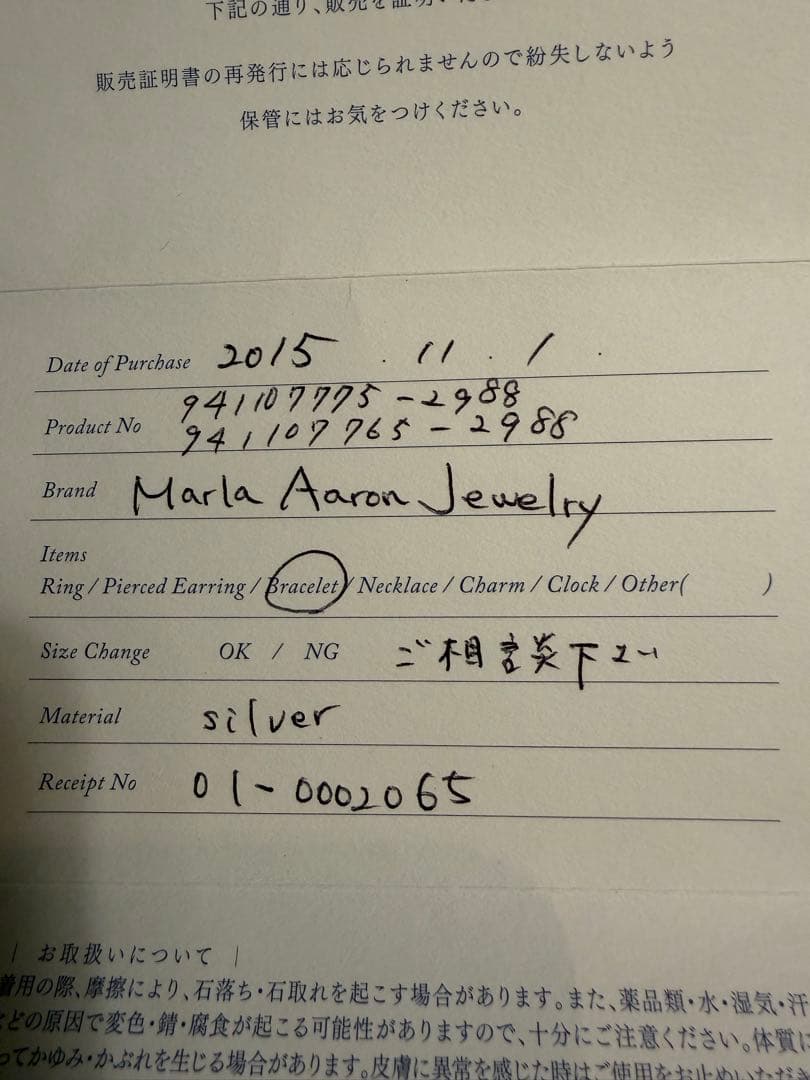 下記の通り、販売を証明いた
販売証明書の再発行には応じられませんので紛失しないよう
保管にはお気をつけください。
Date of Purchase 2015 . 11 . 1 .
941107775-2988
Product No 941107765-2988
Brand Marla Aaron Jewelry
Items
Ring / Pierced Earring / Bracelet / Necklace / Charm / Clock / Other( )
Size Change OK / NG ご相談下さい
Material silver
Receipt No 01-0002065
| お取扱いについて |
着用の際、摩擦により、石落ち・石取れを起こす場合があります。また、薬品類・水・湿気・汗
などの原因で変色・錆・腐食が起こる可能性がありますので、十分にご注意ください。体質に
ってかゆみ・かぶれを生じる場合があります。皮膚に異常を感じた時はご使用をお止めいただき